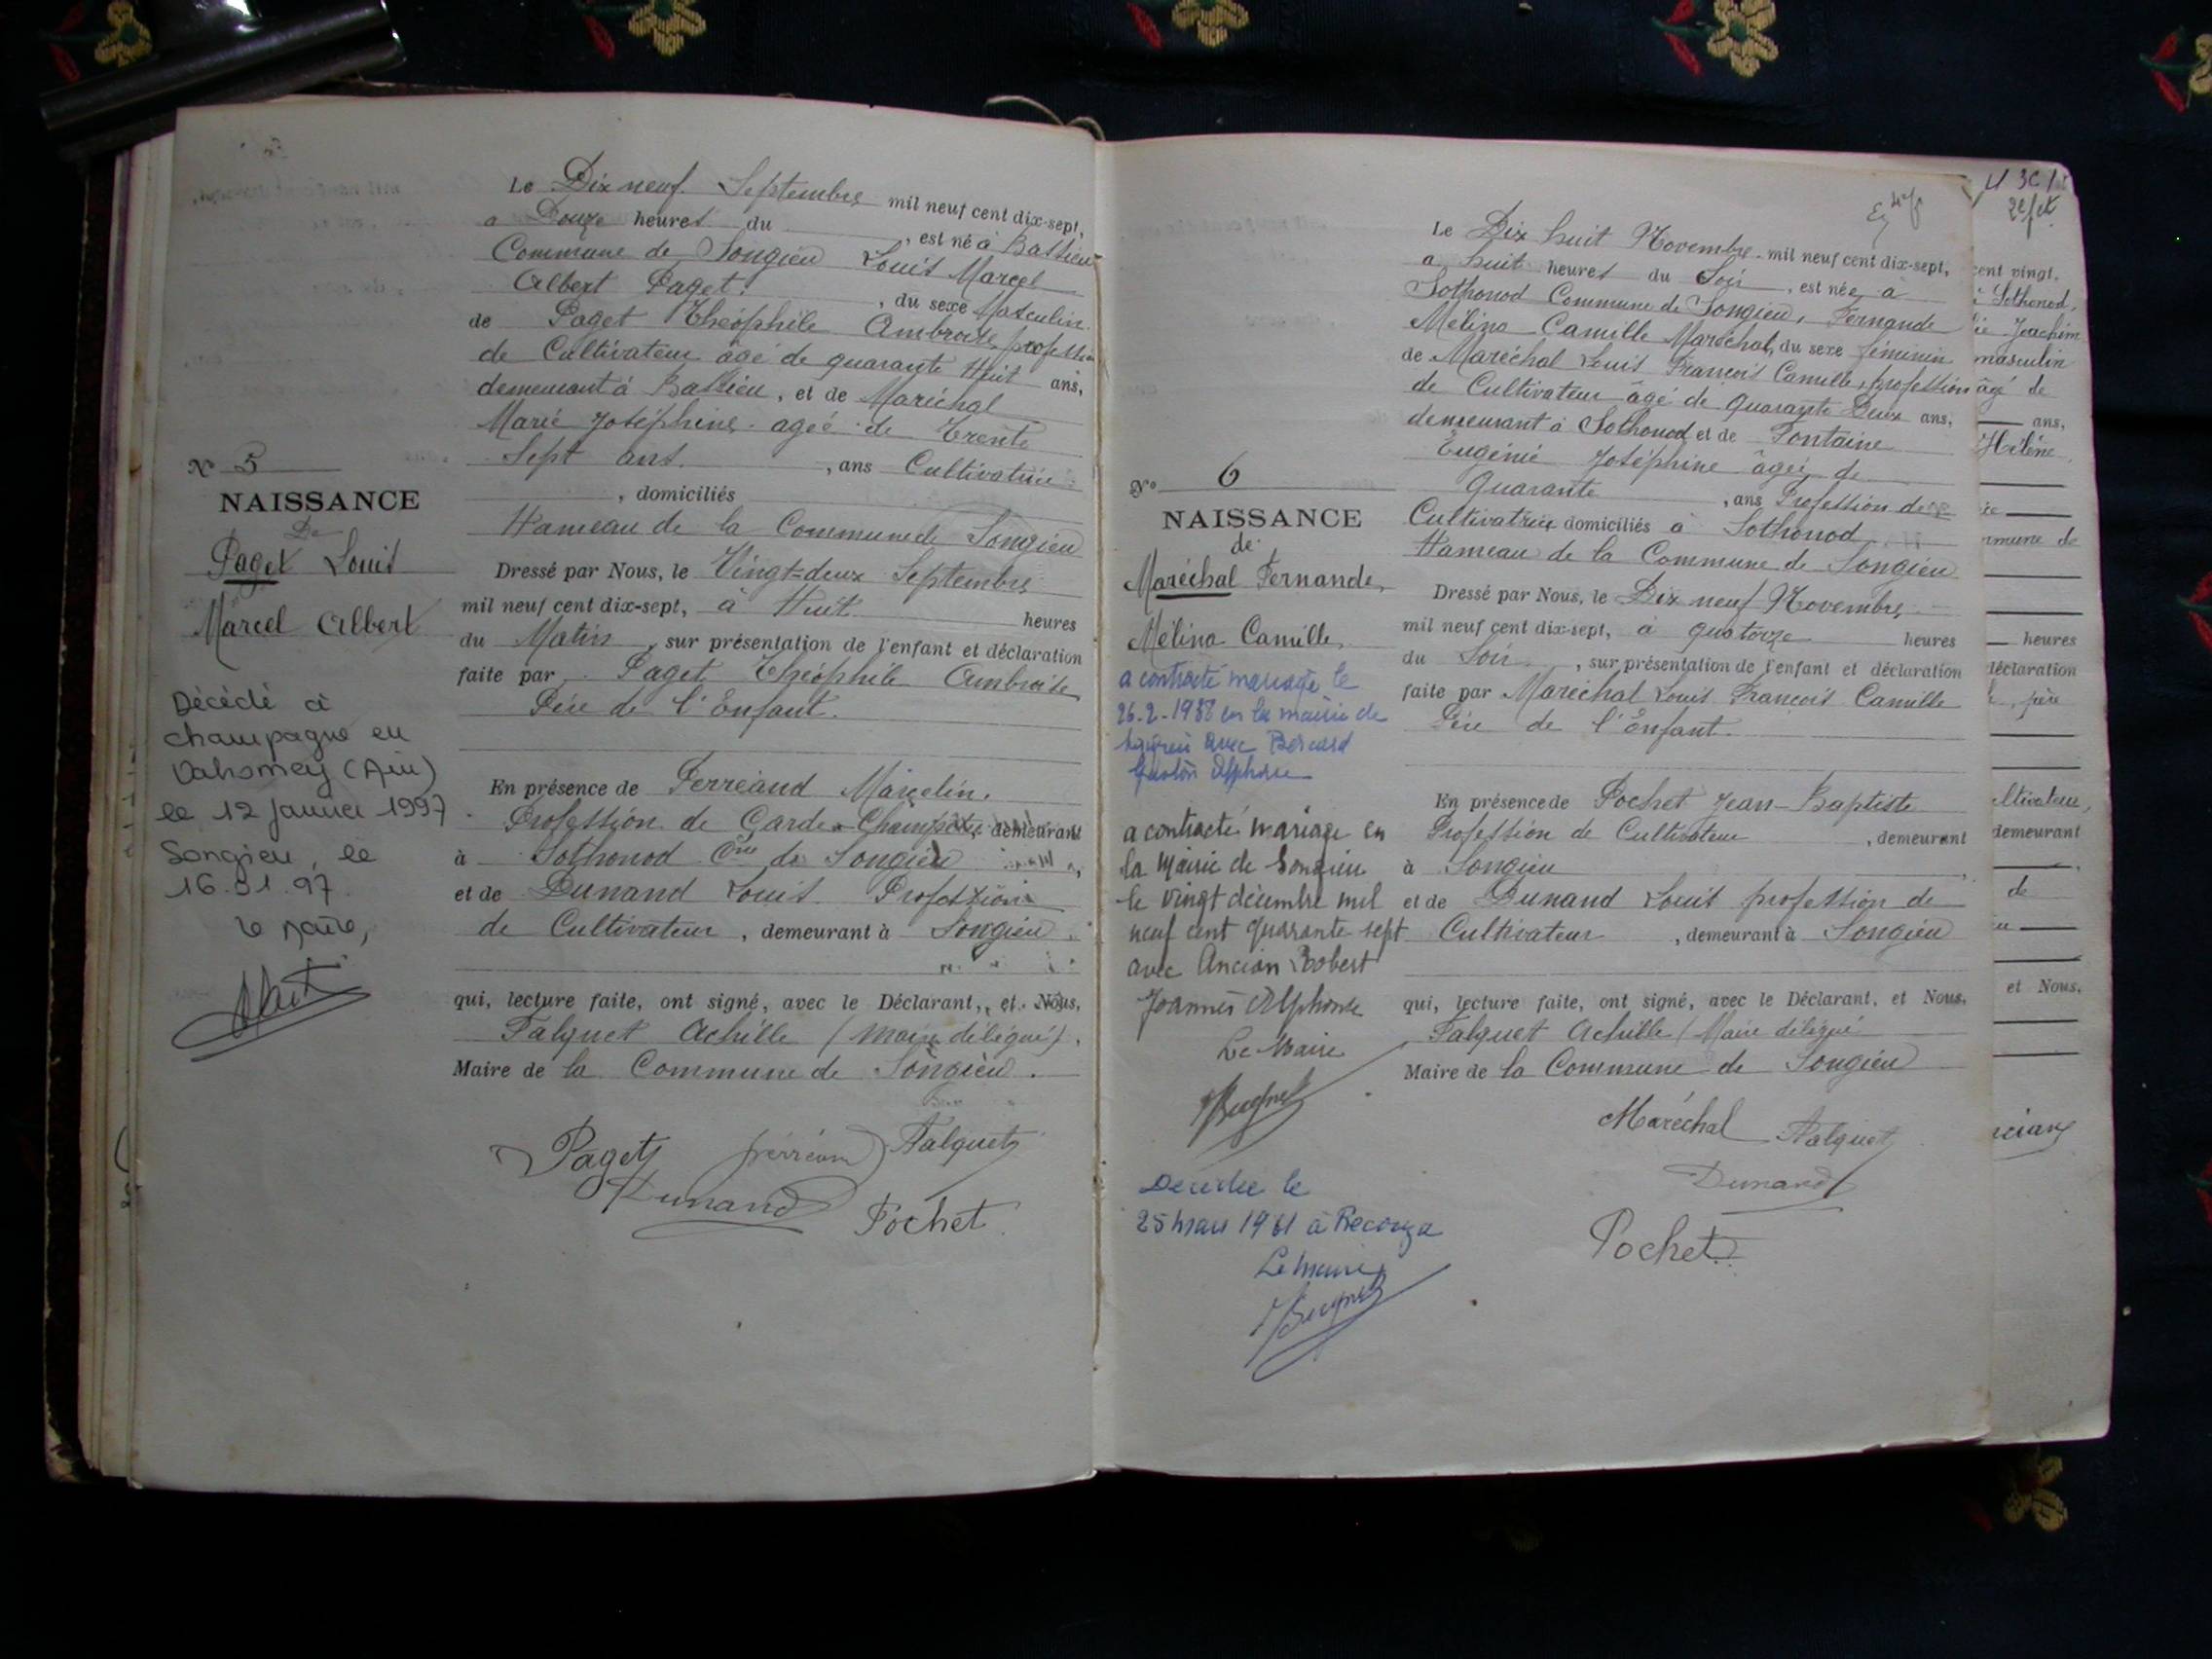 Le Dix neuf Septembre mil neuf cent dix-sept,
a Douze heures du , est né à Bassieu
Commune de Songieu Louis Marcel
Albert Paget. , du sexe Masculin
de Paget Théophile Ambroise, profession
de Cultivateur âgé de quarante Huit ans,
demeurant à Bassieu, et de Maréchal
Marie Joséphine. agée de Trente
Sept ans. , ans Cultivatrice
, domiciliés
Hameau de la Commune de Songieu
Dressé par Nous, le Vingt-deux Septembre
mil neuf cent dix-sept, à Huit heures
du Matin, sur présentation de l'enfant et déclaration
faite par Paget Théophile Ambroise
Père de l'Enfant.
En présence de Perréaud Marcelin.
Profession de Garde-Champêtre demeurant
à Sothonod Cne de Songieu ,
et de Dunand Louis Profession
de Cultivateur , demeurant à Songieu
qui, lecture faite, ont signé, avec le Déclarant, et Nous,
Falquet Achille (maire délégué).
Maire de la Commune de Songieu.
Paget Perréaud Falquet
Dunand Pochet
No 5
NAISSANCE
De
Paget Louis
Marcel Albert
Décédé à
champagne en
Valromey (Ain)
le 12 janvier 1997
Songieu, le
16.01.97.
le Maire,
Le Dix huit Novembre mil neuf cent dix-sept,
a huit heures du Soir, est née, à
Sothonod Commune de Songieu, Fernande
Mélina Camille Maréchal, du sexe féminin
de Maréchal Louis François Camille, profession
de Cultivateur âgé de Quarante Deux ans,
demeurant à Sothonod et de Fontaine
Eugénie Joséphine âgée de
Quarante , ans Profession de
Cultivatrice domiciliés à Sothonod
Hameau de la Commune de Songieu
Dressé par Nous, le Dix neuf Novembre
mil neuf cent dix-sept, à quatorze heures
du Soir , sur présentation de l'enfant et déclaration
faite par Maréchal Louis François Camille
Père de l'Enfant.
En présence de Pochet Jean-Baptiste
Profession de Cultivateur , demeurant
à Songieu ,
et de Dunand Louis profession de
Cultivateur , demeurant à Songieu
qui, lecture faite, ont signé, avec le Déclarant, et Nous,
Falquet Achille (Maire délégué
Maire de la Commune de Songieu
Maréchal Falquet
Dunand
Pochet
No 6
NAISSANCE
de
Maréchal Fernande,
Mélina Camille,
a contracté mariage le
26-2-1938 en la mairie de
Songieu avec
Gaston Alphonse
a contracté mariage en
la Mairie de Songieu
le vingt décembre mil
neuf cent quarante sept
avec Ancian Robert
Joannès Alphonse
Le Maire
Décédée le
25 mars 1961 à
Le Maire
cent vingt.
à Sothonod,
Joachim
masculin
âgé de
ans,
Hélène
mmune de
heures
déclaration
père
ltivateur,
demeurant
de
et Nous,
ncian